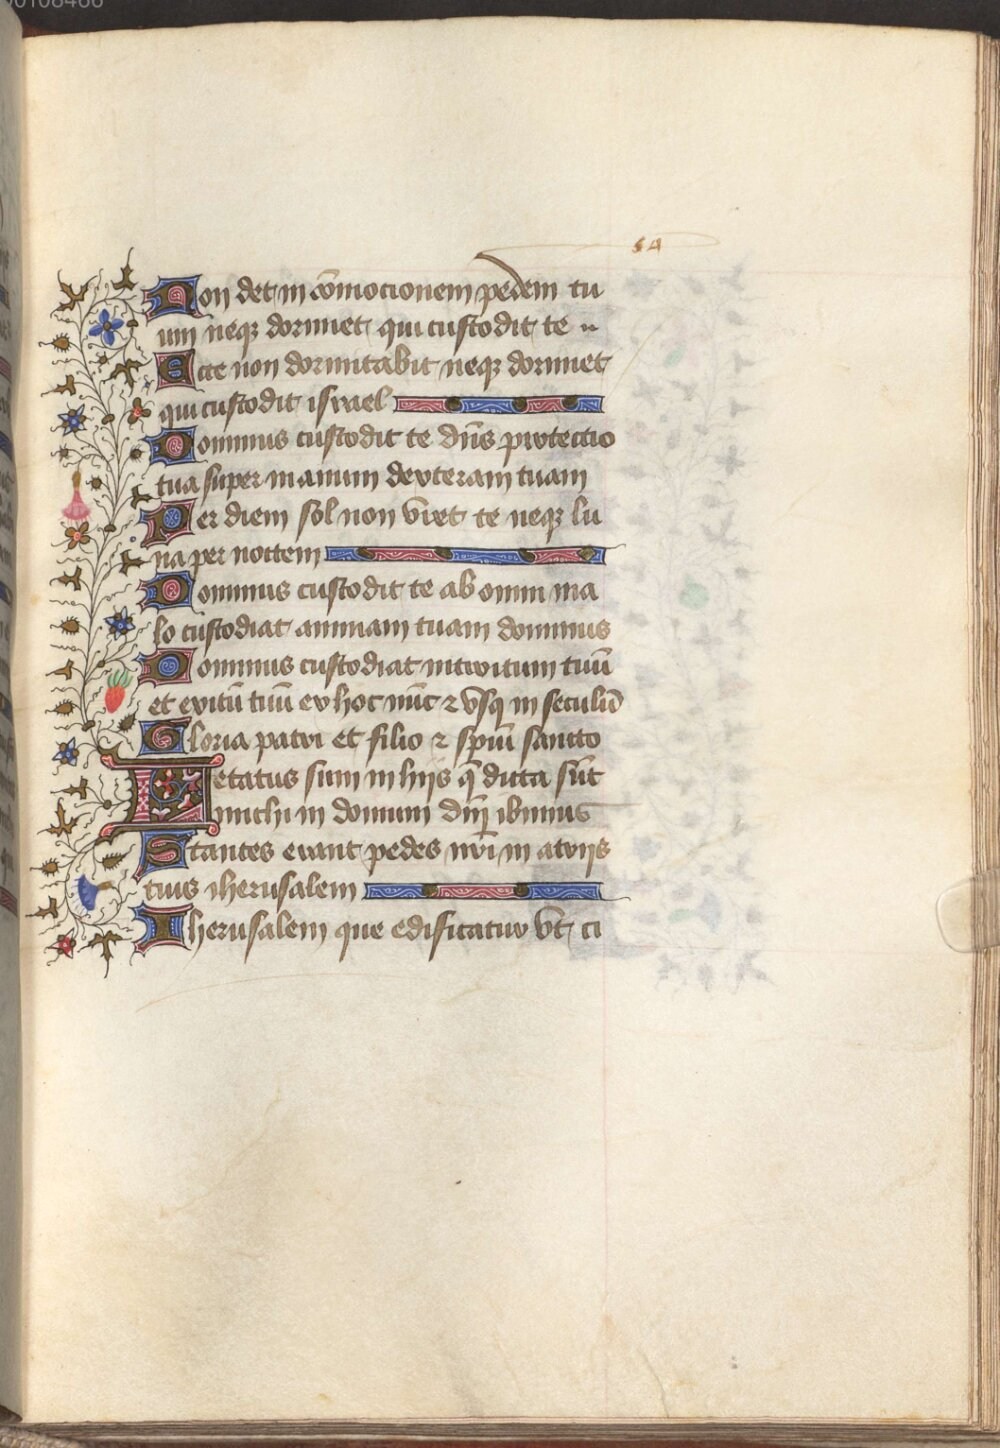 00108466
54
Non det in cōmocionem pedem tu
um neqꝫ dormiet qui custodit te
Ecce non dormitabit neqꝫ dormiet
qui custodit israel
Dominus custodit te dn̄s protectio
tua super manum dexteram tuam
Per diem sol non vret te neqꝫ lu
na per noctem
Dominus custodit te ab omni ma
lo custodiat animam tuam dominus
Dominus custodiat introitum tuū
et exitū tuū ex hoc nūc ⁊ vsqꝫ in seculū
Gloria patri et filio ⁊ spūi sancto
Letatus sum in hijs q̄ dicta sūt
michi in domum dn̄i ibimus
Stantes erant pedes nr̄i in atrijs
tuis iherusalem
Iherusalem que edificatur vt ci